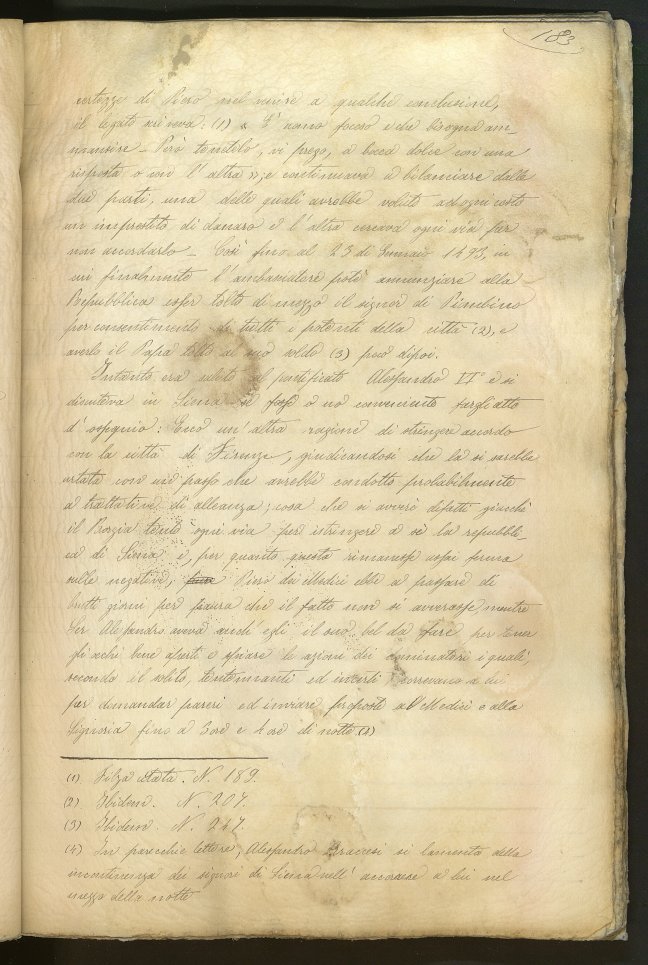 183
certezze di Piero nel venire a qualche conclusione,
il legato scriveva: (1) « E' nano focoso e che bisogna am-
mansire – Però tenetelo, vi prego, a boca dolce con una
risposta o con l'altra »; e continuava a bilanciare dalle
due parti, una delle quali avrebbe voluto ad ogni costo
un imprestito di danaro e l'altra cercava ogni via per
non accordarlo – Così fino al 23 di Gennaio 1493, in
cui finalmente l'ambasciatore potè annunziare alla
Repubblica esser tolto di mezzo il signor di Piombino
per consentimento di tutti i potenti della città (2), e
averlo il Papa tolto al suo soldo (3) poco dipoi.
Intanto era salito al pontificato Alessandro VI° e si
discuteva in Siena se fosse o no conveniente fargli atto
d'ossequio: Ecco un'altra ragione di stringere accordo
con la città di Firenze, giudicandosi che le si sarebbe
ostata con un passo che avrebbe condotto probabilmente
a trattative di alleanza; cosa che si avverò difatti giacchè
il Borgia tentò ogni via per istringere a sè la repubbli-
ca di Siena e, per quanto questa rimanesse assai ferma
sulle negative, Piero dei Medici ebbe a passare de'
brutti giorni per paura che il fatto non si avverasse mentre
Ser Alessandro aveva anch'egli il suo bel da fare per tener
gli occhi bene aperti e spiare le azioni dei cominatori i quali,
secondo il solito, tentennanti ed incerti correvano a lui
per domandar pareri ed inviare proposte al Medici e alla
Signoria fino a 3 ore e 4 ore di notte (4)
(1) Filza citata. N. 189.
(2) Ibidem. N. 207.
(3) Ibidem. N. 247.
(4) In parecchie lettere, Alessandro Braccesi si lamenta della
incontinenza dei signori di Siena nell'accorrere a lui nel
mezzo della notte